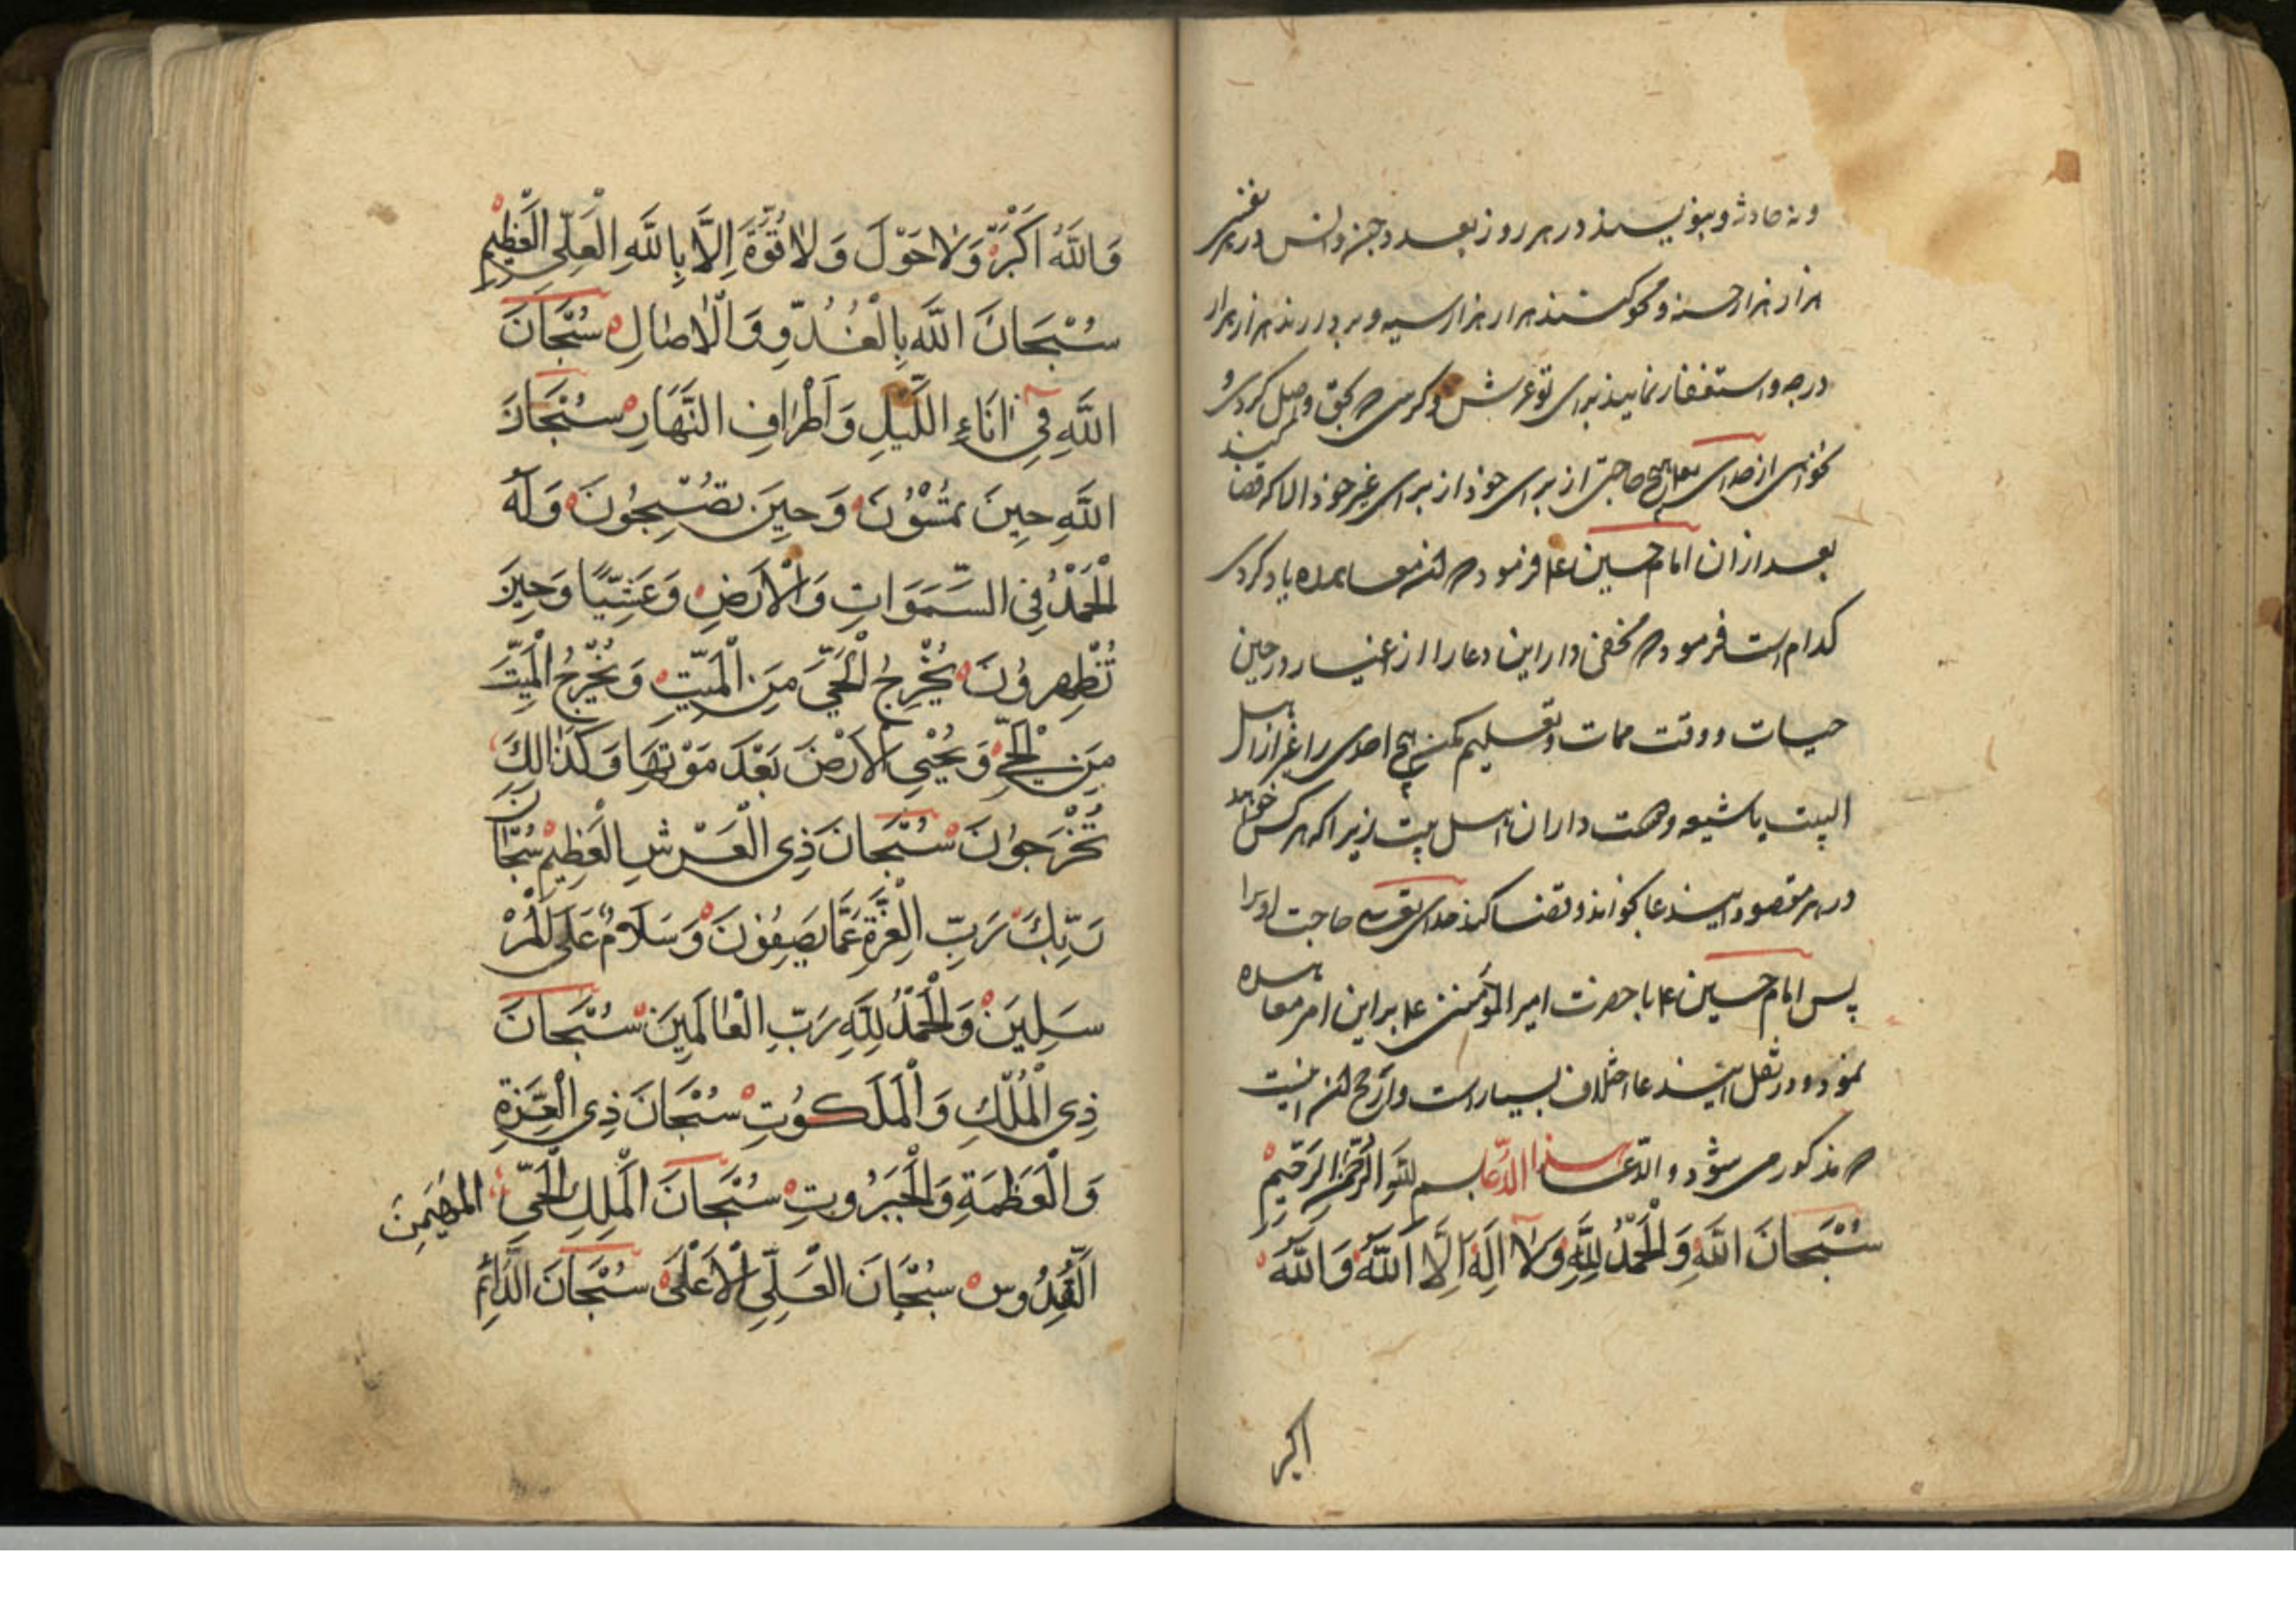 ونه حادثه و بنویسند در هر روز بعدد جن وانس در هر نفسی
هزار هزار حسنه و محو کنند هزار هزار سیه و بر دارند هزار هزار
درجه و استغفار نمایند برای تو عرش و کرسی
از خدای تعالی هیچ حاجتی از برای خود و از برای غیر خود الا که قضا کند
بعد از ان امام حسین ع فرمود که
کدام است فرمود که مخفی دار این دعا را از اغیار در حین
حیات و وقت ممات و تعلیم مکن هیچ احدی را غیر از اهل
البیت یا شیعه و دوست داران اهل بیت زیرا که هر کس
در هر مقصود ایندعا بخواند و قضا کند خدای تعالی حاجت او را
پس امام حسین ع با حضرت امیر المؤمنین ع بر این امر معاهده
نمود و در نقل ایندعا اختلاف بسیار است و ارجح اینست
که مذکور می شود و الدعا هذا الدعا بسم الله الرحمن الرحیم
سُبْحَانَ اللَّهِ وَالْحَمْدُ لِلَّهِ وَلَا اِلَهَ اِلَّا اللَّهُ وَاللَّهُ
اکبر
وَاللَّهُ اَكْبَرُ وَلَا حَوْلَ وَلَا قُوَّةَ اِلَّا بِاللَّهِ الْعَلِيِّ الْعَظِيمِ
سُبْحَانَ اللَّهِ بِالْغُدُوِّ وَالْاصَالِ سُبْحَانَ
اللَّهِ فِي انَاءِ اللَّيْلِ وَاَطْرَافِ النَّهَارِ سُبْحَانَ
اللَّهِ حِينَ تُمْسُوْنَ وَحِينَ تُصْبِحُونَ وَلَهُ
الْحَمْدُ فِي السَّمَوَاتِ وَالْاَرْضِ وَعَشِيًّا وَحِينَ
تُظْهِرُونَ يُخْرِجُ الْحَيَّ مِنَ الْمَيِّتِ وَيُخْرِجُ الْمَيِّتَ
مِنَ الْحَيِّ وَيُحْيِي الْاَرْضَ بَعْدَ مَوْتِهَا وَكَذَالِكَ
تُخْرَجُونَ سُبْحَانَ ذِي الْعَرْشِ الْعَظِيمِ سُبْحَانَ
رَبِّكَ رَبِّ الْعِزَّةِ عَمَّا يَصِفُونَ وَسَلَامٌ عَلَى الْمُرْ
سَلِينَ وَالْحَمْدُ لِلَّهِ رَبِّ الْعَالَمِينَ سُبْحَانَ
ذِي الْمُلْكِ وَالْمَلَكُوتِ سُبْحَانَ ذِي الْعِزَّةِ
وَالْعَظَمَةِ وَالْجَبَرُوتِ سُبْحَانَ الْمَلِكِ الْحَيِّ المُهَيمِنِ
الْقُدُّوسِ سُبْحَانَ الْعَلِيِّ الْاَعْلَى سُبْحَانَ الدَّائِمِ